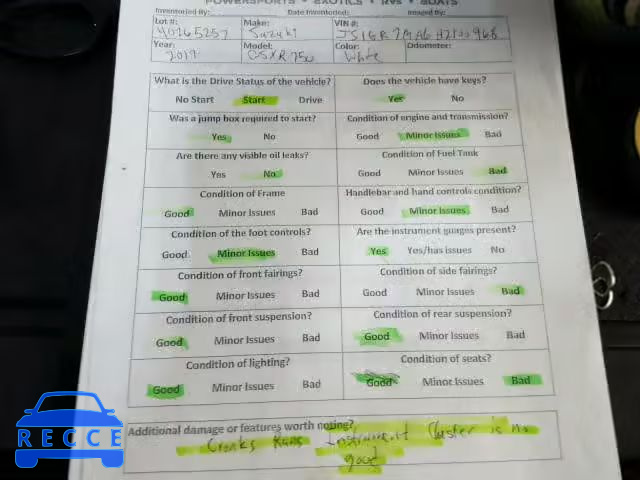 POWERSPORTS • EXOTICS • RVs • BOATS
Inventoried By: Date Inventoried: Imaged By:
Lot #: Make: VIN #:
40765257 Suzuki
Year: Model: Color: Odometer:
2017 GSXR 750 White
What is the Drive Status of the vehicle? Does the vehicle have keys?
No Start Start Drive Yes No
Was a jump box required to start? Condition of engine and transmission?
Yes No Good Minor Issues Bad
Are there any visible oil leaks? Condition of Fuel Tank
Yes No Good Minor Issues Bad
Condition of Frame Handlebar and hand controls condition?
Good Minor Issues Bad Good Minor Issues Bad
Condition of the foot controls? Are the instrument guages present?
Good Minor Issues Bad Yes Yes/has issues No
Condition of front fairings? Condition of side fairings?
Good Minor Issues Bad Good Minor Issues Bad
Condition of front suspension? Condition of rear suspension?
Good Minor Issues Bad Good Minor Issues Bad
Condition of lighting? Condition of seats?
Good Minor Issues Bad Good Minor Issues Bad
Additional damage or features worth noting?
Cranks Runs Instrument Cluster is no
good
RECCE